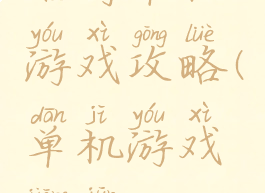 yóu xì gōng lüè
游戏攻略(
dān jī yóu xì
单机游戏